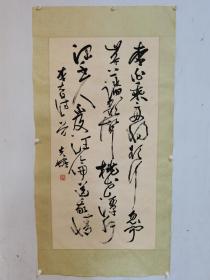 李白乘舟将欲行忽闻
岸上踏歌声桃花潭水
深千尺不及汪伦送我情
李白诗